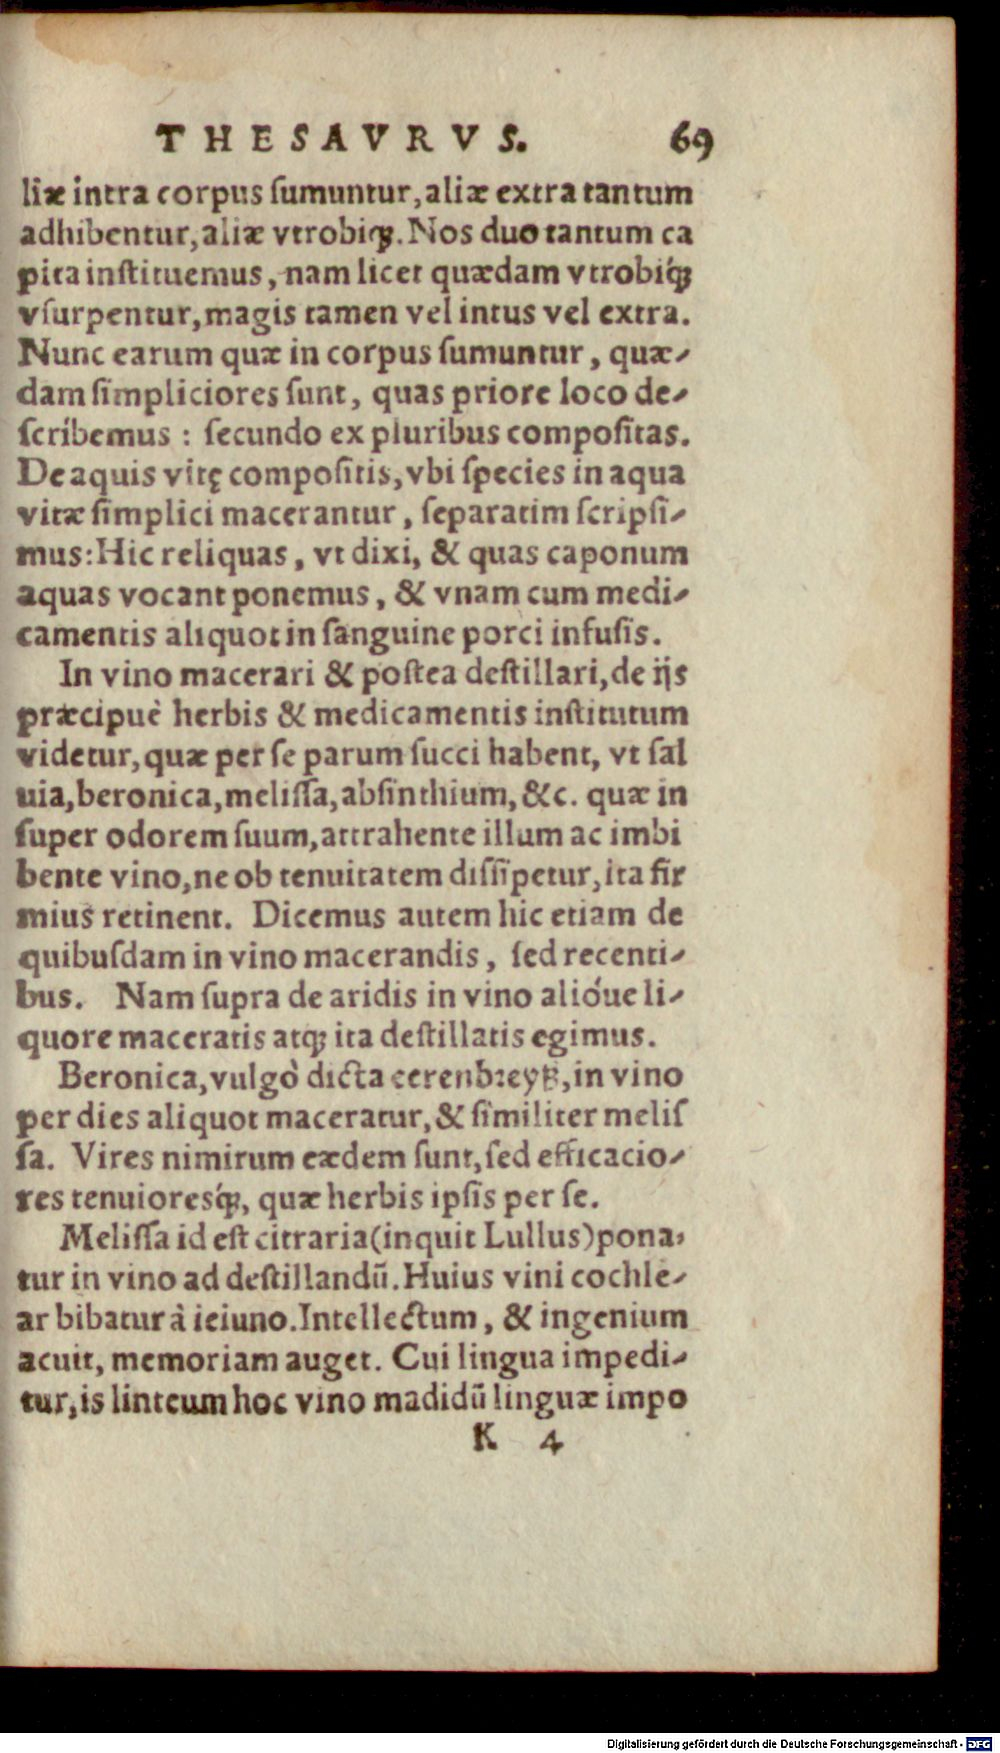 THESAVRVS. 69
liæ intra corpus ſumuntur, aliæ extra tantum
adhibentur, aliæ vtrobiqꝫ. Nos duo tantum ca
pita inſtituemus, nam licet quædam vtrobiqꝫ́
vſurpentur, magis tamen vel intus vel extra.
Nunc earum quæ in corpus ſumuntur, quæ-
dam ſimpliciores ſunt, quas priore loco de-
ſcribemus : ſecundo ex pluribus compoſitas.
De aquis vitę compoſitis, vbi ſpecies in aqua
vitæ ſimplici macerantur, ſeparatim ſcripſi-
mus: Hic reliquas, vt dixi, & quas caponum
aquas vocant ponemus, & vnam cum medi-
camentis aliquot in ſanguine porci infuſis.
In vino macerari & poſtea deſtillari, de ijs
præcipuè herbis & medicamentis inſtitutum
videtur, quæ per ſe parum ſucci habent, vt ſal
uia, beronica, meliſſa, abſinthium, &c. quæ in
ſuper odorem ſuum, attrahente illum ac imbi
bente vino, ne ob tenuitatem diſſipetur, ita fir
mius retinent. Dicemus autem hic etiam de
quibuſdam in vino macerandis, ſed recenti-
bus. Nam ſupra de aridis in vino alióue li-
quore maceratis atqꝫ ita deſtillatis egimus.
Beronica, vulgò dicta eerenbreyß, in vino
per dies aliquot maceratur, & ſimiliter meliſ
ſa. Vires nimirum eædem ſunt, ſed efficacio-
res tenuioresqꝫ́, quæ herbis ipſis per ſe.
Meliſſa id eſt citraria (inquit Lullus) pona-
tur in vino ad deſtillandū. Huius vini cochle-
ar bibatur à ieiuno. Intellectum, & ingenium
acuit, memoriam auget. Cui lingua impedi-
tur, is linteum hoc vino madidū linguæ impo
K 4
Digitalisierung gefördert durch die Deutsche Forschungsgemeinschaft - DFG